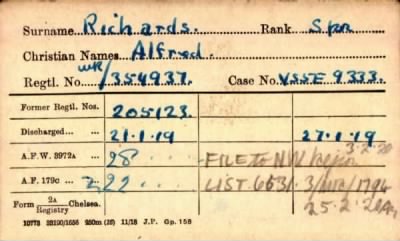 Surname Richards. Rank Spr
Christian Names Alfred.
Regtl. No. WR/354937. Case No. VSSE 9333.
Former Regtl. Nos. 205123.
Discharged 21.1.19 27.1.19
3.2.20
A.F.W. 3972A 28 FILE to NW Region
A.F. 179c Z22 LIST 6631.
25.2.20
Form 2A/Registry Chelsea.
10773 33290/1656 250m (16) 11/18 J.P. Gp. 158